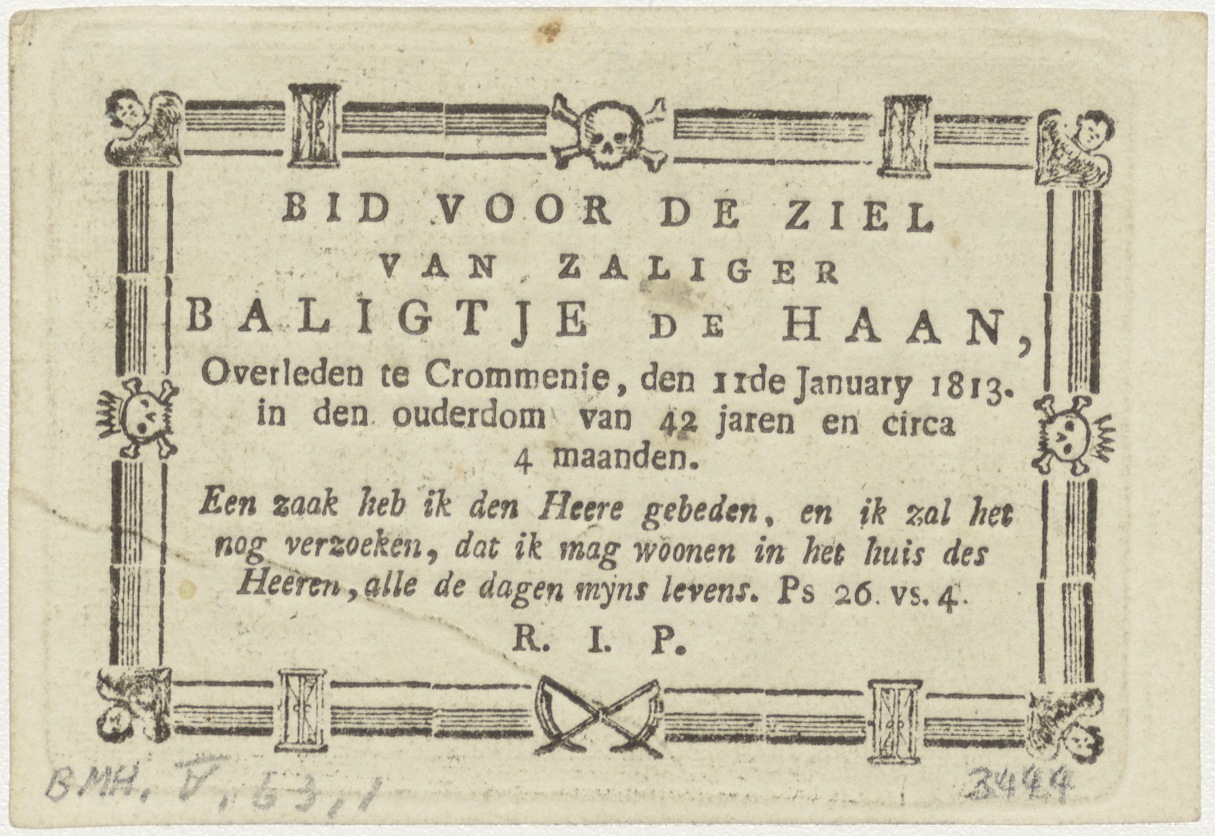 BID VOOR DE ZIEL
VAN ZALIGER
BALIGTJE DE HAAN,
Overleden te Crommenie, den 11de January 1813.
in den ouderdom van 42 jaren en circa
4 maanden.
Een zaak heb ik den Heere gebeden, en ik zal het
nog verzoeken, dat ik mag woonen in het huis des
Heeren, alle de dagen myns levens. Ps 26. vs. 4.
R. I. P.
BMH. V. 63, 1
3444